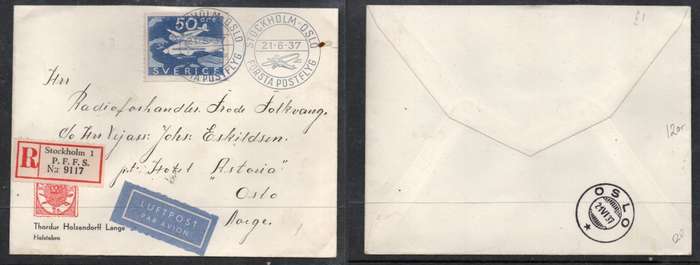 50 öre
SVERIGE
STOCKHOLM-OSLO
21-6-37
FÖRSTA POSTFLYG
STOCKHOLM-OSLO
FÖRSTA POSTFLYG
Hrr
Radioforhandler Frode Folkvang.
c/o Hrr Vejass: Johs: Eskildsen.
pt: Hotel "Astoria"
Oslo
Norge.
R
Stockholm 1
P. F. F. S.
No 9117
LUFTPOST
PAR AVION
Thordur Holzendorff Lange
Holstebro
£1
120r
OSLO
21VI37